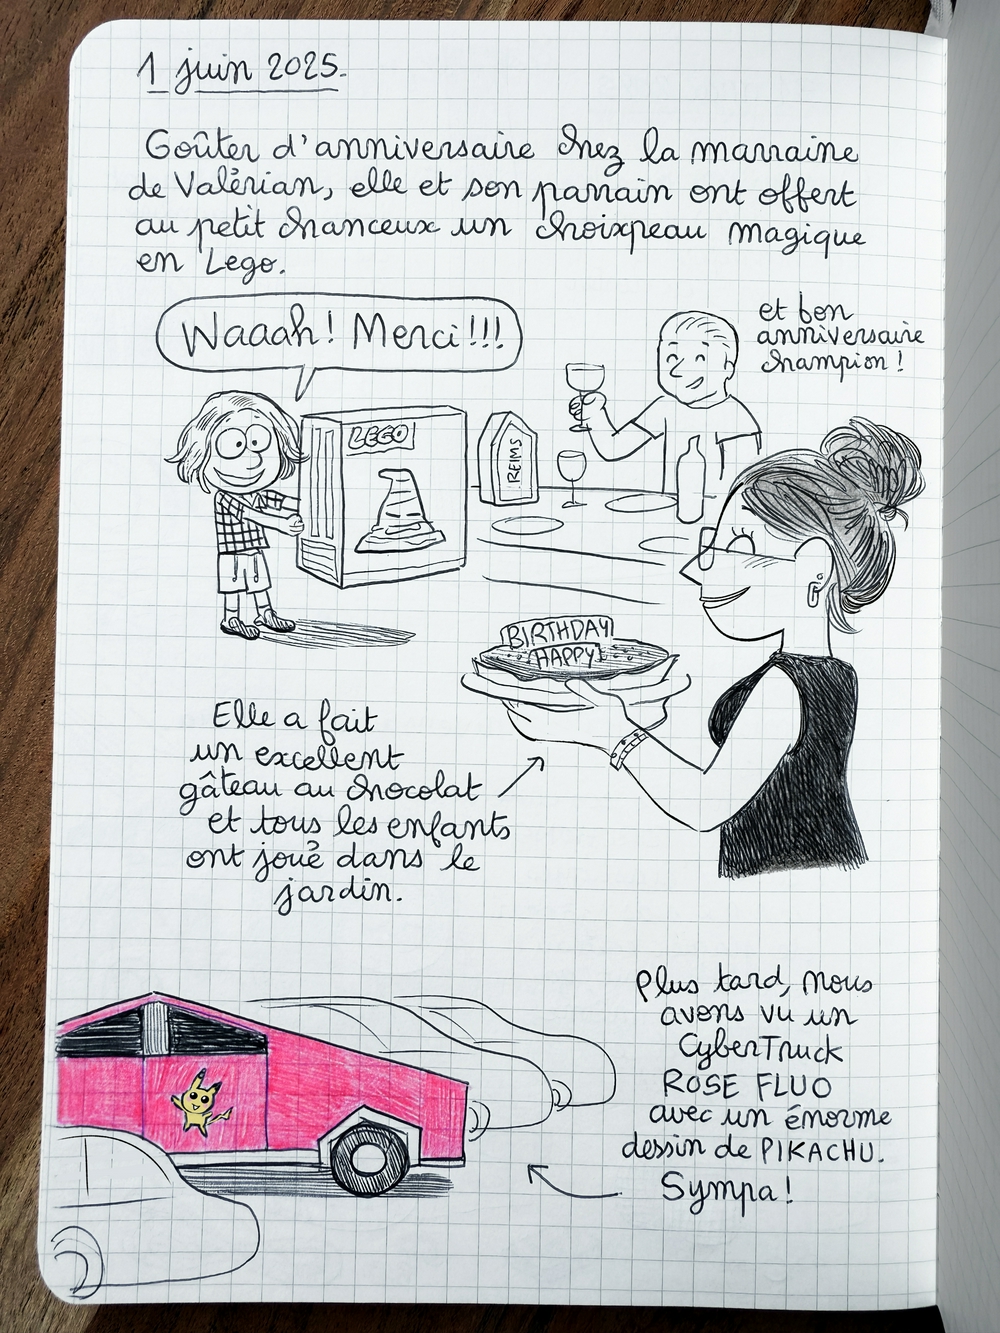 1 juin 2025.
Goûter d'anniversaire chez la marraine
de Valérian, elle et son parrain ont offert
au petit chanceux un choixpeau magique
en Lego.
Waaah! Merci!!!
et bon
anniversaire
champion!
LEGO
REIMS
BIRTHDAY
HAPPY
Elle a fait
un excellent
gâteau au chocolat
et tous les enfants
ont joué dans le
jardin.
Plus tard, nous
avons vu un
CyberTruck
ROSE FLUO
avec un énorme
dessin de PIKACHU.
Sympa!